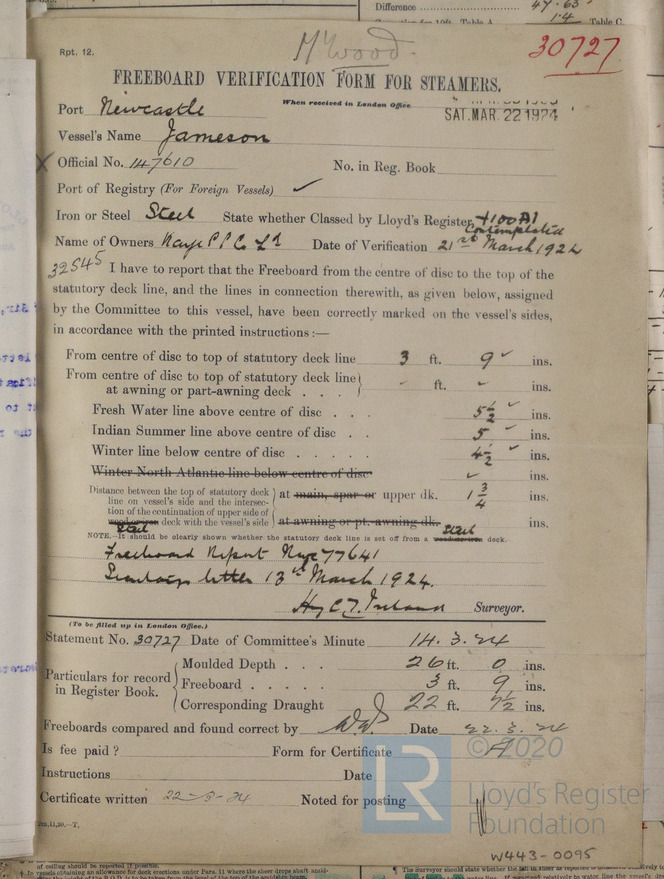 Difference 47.63
1.4 Table C.
Rpt. 12.
Mr Wood.
30727
FREEBOARD VERIFICATION FORM FOR STEAMERS.
When received in London Office
Port Newcastle
SAT. MAR. 22 1924
Vessel's Name Jameson
X Official No. 147610 No. in Reg. Book
Port of Registry (For Foreign Vessels) ✓
Iron or Steel Steel State whether Classed by Lloyd's Register +100A1
Contemplated
Name of Owners Date of Verification 21st March 1924
32545 I have to report that the Freeboard from the centre of disc to the top of the
statutory deck line, and the lines in connection therewith, as given below, assigned
by the Committee to this vessel, have been correctly marked on the vessel's sides,
in accordance with the printed instructions :—
From centre of disc to top of statutory deck line 3 ft. 9 ✓ ins.
From centre of disc to top of statutory deck line
at awning or part-awning deck . . . - ft. - ins.
Fresh Water line above centre of disc . . . 5½ ✓ ins.
Indian Summer line above centre of disc . . 5 ✓ ins.
Winter line below centre of disc . . . . . 4½ ✓ ins.
Winter North Atlantic line below centre of disc ✓ ins.
Distance between the top of statutory deck
line on vessel's side and the intersec-
tion of the continuation of upper side of
wood or iron deck with the vessel's side
Steel
at main, spar or upper dk. 1¾ ins.
at awning or pt. awning dk. ins.
Steel
NOTE.—It should be clearly shown whether the statutory deck line is set off from a wood or iron deck.
Freeboard Report Nwc 77641
letter 13th March 1924.
Hy C. T. Ireland Surveyor.
(To be filled up in London Office.)
Statement No. 30727 Date of Committee's Minute 14. 3. 24
Particulars for record
in Register Book.
Moulded Depth . . . 26 ft. 0 ins.
Freeboard . . . . . 3 ft. 9 ins.
Corresponding Draught 22 ft. 7½ ins.
Freeboards compared and found correct by Date 22. 3. 24
Is fee paid ? Form for Certificate A
Instructions Date
Certificate written 22-3-24 Noted for posting
© 2020
LR
Lloyd's Register
Foundation
W443-0095